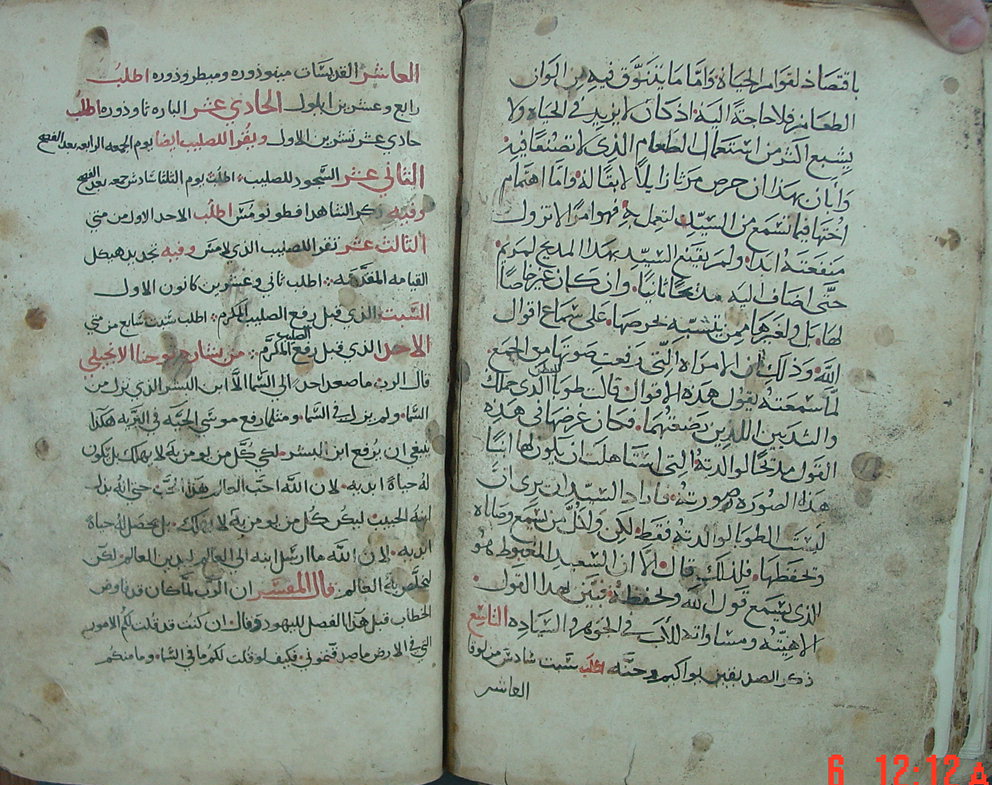 باقتصاد لقوام الحياة واما ما يتنوق فيه من الوان
الطعام فلا حاجة اليه اذ كان لا يزيد في الحياة ولا
يشبع اكثر من استعمال الطعام الذي لا تصنعا فيه
وابان بهذا ان حرص مرثا زايلا لا بقا له واما اهتمام
اختها فيما تسمع من السيد لتعمل به فهو امر لا تزول
منفعته ابدا ولم يقنع السيد بهذا المديح لمريم
حتى اضاف اليه مديحا ثانيا وان كان غير خاصا
لها بل ولغيرها ممن يتشبه بحرصها على سماع اقوال
الله وذلك ان الامراه التي رفعت صوتها من الجمع
لما سمعته يقول هذه الاقوال قالت طوبا الذي حملك
والثديين اللذين رضعتهما فكان غرضها في هذه
القول مدحا لوالدته التي استاهلت ان يكون لها ابنا
هذا الصوره صورته فاراد السيد ان يرى ان
ليست الطوبا لوالدته فقط لكن ولكل من يسمع وصاياه
وتحفظها فلذلك قال الا ان السعيد المغبوط هو
الذي يسمع قول الله ويحفظه فبين بهذا القول
الاهيته ومساواته للاب في الجوهر والسياده التاسع
ذكر الصديقين يواكيم وحنه اطلب سبت سادس من لوقا
العاشر
العاشر القديسات مينوذوره وميطروذوره اطلب
رابع وعشرين ايلول الحادي عشر الباره ثاوذوره اطلب
حادي عشر تشرين الاول ويقرا للصليب ايضا يوم الجمعه الرابعه بعد الفصح
الثاني عشر السجود للصليب اطلب يوم الثلثا سادس جمعه بعد الفصح
وفيه ذكر الشاهد افطونومس اطلب الاحد الاول من متي
الثالث عشر تقرا للصليب الذي لامس وفيه تجديد هيكل
القيامه المقدسه اطلب ثاني وعشرين كانون الاول
السبت الذي قبل رفع الصليب المكرم اطلب سبت سابع من متي
الاحد الذي قبل رفع الصليب المكرم من بشارة يوحنا الانجيلي
قال الرب ما صعد احد الى السما الا ابن البشر الذي نزل من
السما ولم يزل في السما ومثلما رفع موسى الحيه في البريه هكذا
ينبغي ان يرفع ابن البشر لكي كل من يومن به لا يهلك بل تكون
له حياة ابديه لان الله احب العالم هذا الحب حتى انه بذل
ابنه الحبيب ليكن كل من يومن به لا يهلك بل يحصل له حياة
ابديه لان الله ما ارسل ابنه الى العالم ليدين العالم لكن
ليخلص به العالم قال المفسر ان الرب لما كان قد فاوض
الخطاب قبل هذا الفصل لليهود وقال ان كنت قد قلت لكم الامور
التي في الارض ما صدقتموني فكيف لو قلت لكم ما في السما وما منكم
6 12:12